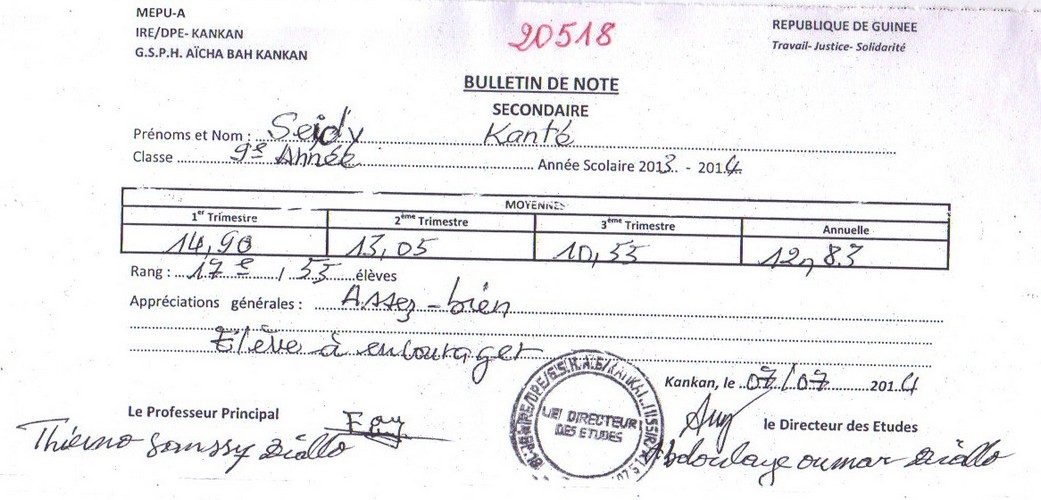 MEPU-A
IRE/DPE- KANKAN
G.S.P.H. AÏCHA BAH KANKAN
20518
REPUBLIQUE DE GUINEE
Travail- Justice- Solidarité
BULLETIN DE NOTE
SECONDAIRE
Prénoms et Nom : Seidy Kanté
Classe 9e Année Année Scolaire 2013 - 2014
MOYENNES
1er Trimestre 2ème Trimestre 3ème Trimestre Annuelle
14,90 13,05 10,55 12,83
Rang : 17e / 55 élèves
Appréciations générales : Assez-bien
Elève à encourager
Kankan, le 07/07 2014
Le Professeur Principal
le Directeur des Etudes
Thierno Diallo
Abdoulaye oumar Diallo
LE DIRECTEUR
DES ETUDES